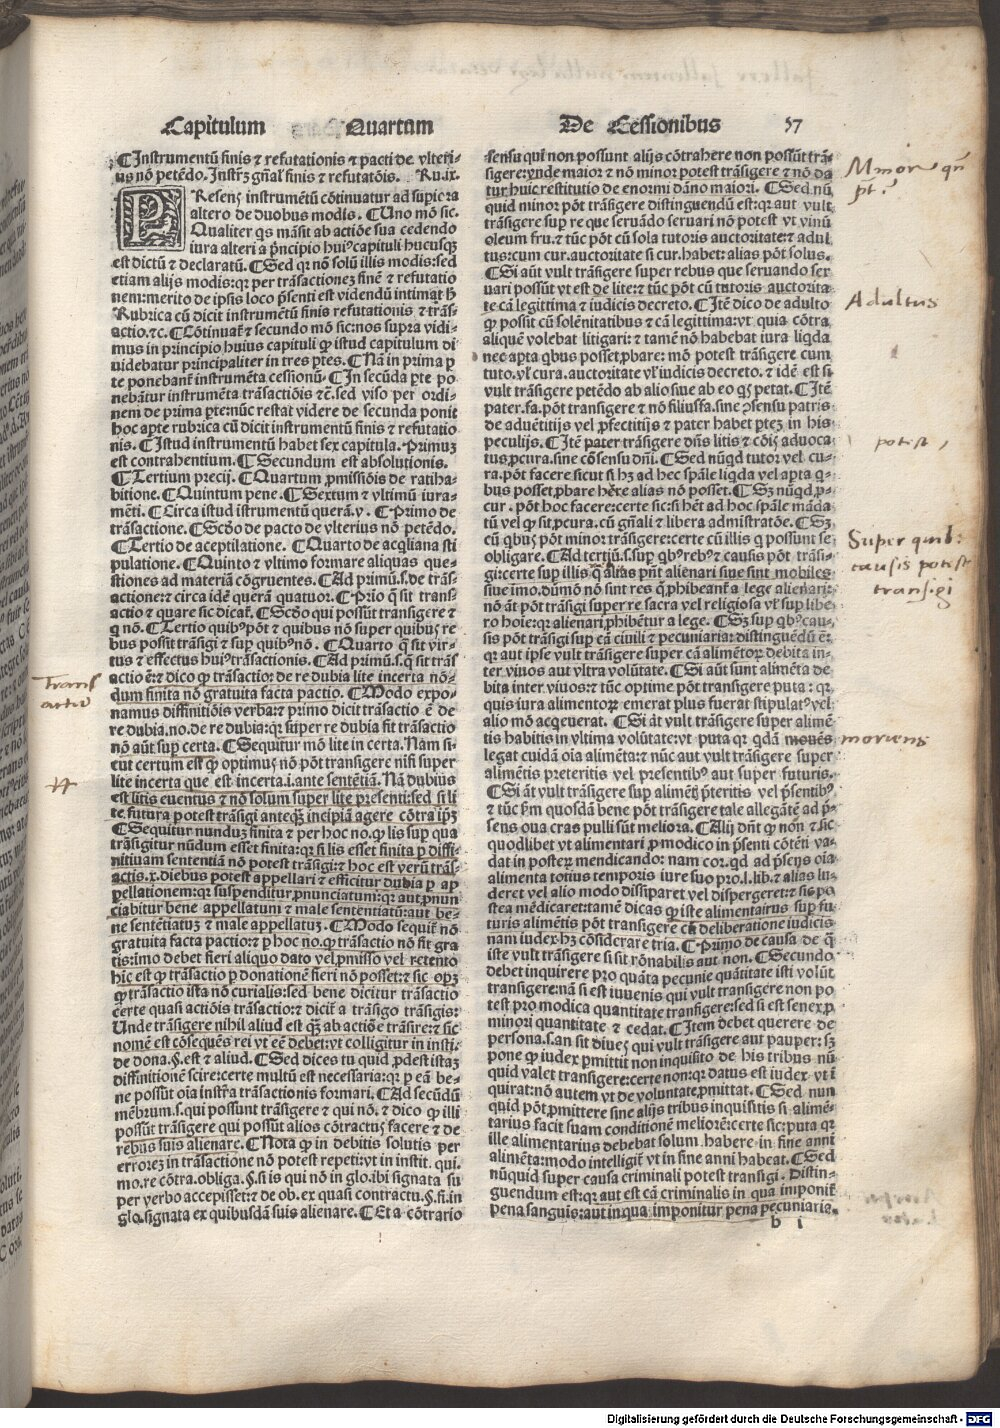 Capitulum Quartum
De Cessionibus 57
¶Instrumentū finis ⁊ refutationis ⁊ pacti de vlteri-
us nō petēdo. Instrꝫ gñal' finis ⁊ refutatōis. Ru.ix.
PResenꝫ instrumētū cōtinuatur ad supiora
altero de duobus modis. ¶Uno mō sic.
Qualiter qs māsit ab actiōe sua cedendo
iura alteri a pncipio hui⁹ capituli hucusqꝫ
est dictū ⁊ declaratū. ¶Sed qꝛ nō solū illis modis: sed
etiam alijs modis: qꝛ per trāsactionez finē ⁊ refutatio
nem: merito de ipsis loco p̄senti est videndū
Rubrica cū dicit instrumētū finis refutationis ⁊ trās-
actio.⁊c. ¶Cōtinuat' ⁊ secundo mō sic: nos supra vidi-
mus in principio huius capituli ꝙ istud capitulum di
videbatur principaliter in tres ptes. ¶Nā in prima p
te ponebant' instrumēta cessionū. ¶In secūda pte po
nebātur instrumēta trāsactiōis ⁊c̄. sed viso per ordi-
nem de prima pte: nūc restat videre de secunda ponit
hoc apte rubrica cū dicit instrumentū finis ⁊ refutatio
nis. ¶Istud instrumentū habet sex capitula. Primuꝫ
est contrahentium. ¶Secundum est absolutionis.
¶Tertium precij. ¶Quartum ꝓmissiōis de ratiha-
bitione. ¶Quintum pene. ¶Sextum ⁊ vltimū iura-
mēti. ¶Circa istud istrumentū querā.v. ¶Primo de
trāsactione. ¶Scḋo de pacto de vlterius nō petēdo.
¶Tertio de aceptilatione. ¶Quarto de acqliana sti
pulatione. ¶Quinto ⁊ vltimo formare aliquas que-
stiones ad materiā cōgruentes. ¶Ad primū.s. de trās-
actione: ⁊ circa idē querā quatuor. ¶Prīo q̄ sit trans-
actio ⁊ quare sic dicat'. ¶Scḋo qui possūt transigere ⁊
q nō. ¶Tertio quib⁹ pōt ⁊ quibus nō super quibuꝫ re
bus possit trāsigi ⁊ sup quib⁹ nō. ¶Quarto q̄ sit vir-
tus ⁊ effectus hui⁹ trāsactionis. ¶Ad primū.s. q̄ sit trās
actio ē: ⁊ dico ꝙ trāsactio: de re dubia lite incerta nō-
dum finita nō gratuita facta pactio. ¶Modo expo-
namus diffinitiōis verba: ⁊ primo dicit trāsactio ē de
re dubia. no. de re dubia: qꝛ super re dubia fit trāsactio
nō aūt sup certa. ¶Sequitur mō lite in certa. Nam si-
cut certum est ꝙ optimuꝫ nō pōt transigere nisi super
lite incerta que est incerta.i.ante sentētiam. Nā dubius
est litis euentus ⁊ nō solum super lite presenti: sed si li
te futura potest trāsigi anteqꝫ incipiā agere cōtra ip̄ꝫ
¶Sequitur nunduꝫ finita ⁊ per hoc no. ꝙ lis sup qua
trāsigitur nūdum esset finita: qꝛ si lis esset finita p diffi-
nitiuam sententiā nō potest trāsigi: ⁊ hoc est verū trās-
actis.x. diebus potest appellari ⁊ efficitur dubia p ap
pellationem: qꝛ suspenditur ꝓnunciatum: qꝛ aut ꝓnun
ciabitur bene appellatum ⁊ male sententiatū: aut be-
ne sentētiatuꝫ ⁊ male appellatuꝫ. ¶Modo sequit' nō
gratuita facta pactio: ⁊ p hoc no. ꝙ trāsactio nō fit gra
tis: imo debet fieri aliquo dato vel ꝓmisso vel retento
hic est ꝙ trāsactio p donationē fieri nō posset: ⁊ sic opꝫ
ꝙ trāsactio ista nō curialis: sed bene dicitur trāsactio
certe quasi actiōis trāsactio: ⁊ dicit' a trāsigo trāsigis:
Unde trāsigere nihil aliud est qꝫ ab actiōe trāsire: ⁊ sic
nomē est cōsequēs rei vt eē debet: vt colligitur in insti.
de dona. §. est ⁊ aliud. ¶Sed dices tu quid ꝓdest istaꝫ
diffinitionē scire: certe multū est necessaria: qꝛ p eā be-
ne possūt oīa instr̄a trāsactionis formari. ¶Ad secūdū
mēbrum.s. qui possunt trāsigere ⁊ qui nō. ⁊ dico ꝙ illi
possūt trāsigere qui possūt alios cōtractuꝫ facere ⁊ de
rebus suis alienare. ¶Nota ꝙ in debitis solutis per
errorez in trāsactione nō potest repeti: vt in instit. qui.
mo. re cōtra. obliga. §. si is qui nō in glo. ibi signata su
per verbo accepisset: ⁊ de ob. ex quasi contractu. §. fi. in
glo. signata ex quibusdā suis alienare. ¶Et a cōtrario
sensu qui non possunt alijs cōtrahere non possūt trā-
sigere: vnde maior ⁊ nō minor potest trāsigere ⁊ nō da
tur huic restitutio de enormi dāno maiori. ¶Sed nū
quid minor pōt trāsigere distinguendū est: qꝛ aut vult
trāsigere sup re que seruādo seruari nō potest vt vinū
oleum fru. ⁊ tūc pōt cū sola tutoris auctoritate: ⁊ adul
tus: cum cur. auctoritate si cur. habet: alias pōt solus.
¶Si aūt vult trāsigere super rebus que seruando ser
uari possūt vt est de lite: ⁊ tūc pōt cū tutoris auctorita-
te cā legittima ⁊ iudicis decreto. ¶Itē dico de adulto
ꝙ possit cū solēnitatibus ⁊ cā legittima: vt quia cōtra
aliquē volebat litigari: ⁊ tamē nō habebat iura liqda
nec apta qbus posset ꝓbare: mō potest trāsigere cum
tuto. vl' cura. auctoritate vl' iudicis decreto. ⁊ idē est si
vult trāsigere petēdo ab alio siue ab eo qꝫ petat. ¶Itē
pater. fa. pōt transigere ⁊ nō filiusfa. sine ꝯsensu patris
de aduētitijs vel ꝓfectitijs ⁊ pater habet pteꝫ in his
peculijs. ¶Itē pater trāsigere dn̄s litis ⁊ cōij aduoca
tus ꝓcura. sine cōsensu dn̄i. ¶Sed nūqd tutor vel cu-
ra. pōt facere sicut si hꝫ ad hec spāle liqda vel apta q
bus posset ꝓbare hēre alias nō posset. ¶Sꝫ nūqd p-
cur. pōt hoc facere: certe sic: si hēt ad hoc spāle māda
tū vel ꝙ sit ꝓcura. cū gn̄ali ⁊ libera admistratōe. ¶Sꝫ
cū qbuꝫ pōt minor: trāsigere: certe cū illis q possunt se
obligare. ¶Ad tertiū.s. sup qb⁹ reb⁹ ⁊ causis pōt trāsi-
gi: certe sup illis q̄ alias pn̄t alienari siue sint mobiles
siue īmo. dūmō nō sint res q̄ phibeant' a lege alienari:
nō āt pōt trāsigi super re sacra vel religiosa vl' sup libe
ro hoīe: qꝛ alienari ꝓhibētur a lege. ¶Sꝫ sup qb⁹ cau-
sis pōt trāsigi sup eā ciuili ⁊ pecuniaria: distinguēdū ē:
qꝛ aut ipse vult trāsigere super cā alimētoꝝ debita in-
ter viuos aut vltra volūtate. ¶Si aūt sunt alimēta de
bita inter viuos: ⁊ tūc optime pōt transigere puta: qꝛ
quis iura alimentoꝝ emerat plus fuerat stipulat⁹ vel
alio mō acqeuerat. ¶Si āt vult trāsigere super alimē
tis habitis in vltima volūtate: vt puta qꝛ qdā moues
legat cuidā oīa alimēta: ⁊ nūc aut vult trāsigere super
alimētis preteritis vel presentib⁹ aut super futuris.
¶Si āt vult trāsigere sup alimēt' p̄teritis vel p̄sentib⁹
⁊ tūc scd̄m quosdā bene pōt trāsigere tale allegātē ad p̄-
sens oua cras pulli sūt meliora. ¶Alij dn̄t ꝙ non ⁊ sic
quodlibet vt alimentari ꝓ modico in p̄senti cōtēti va-
dat in posteꝝ mendicando: nam cor. qd ad p̄sens oīa
alimenta totius temporis iure suo pro.l. lib. ⁊ alias lu-
deret vel alio modo dissiparet vel dispergeret: ⁊ sic po
stea mēdicaret: tamē dicas ꝙ iste alimentairus sup fu
turis alimētis pōt transigere cū deliberatione iudicis
nam iudex hꝫ cōsiderare tria. ¶Primo de causa de q̄
iste vult trāsigere si sit rōnabilis aut non. ¶Secundo
debet inquirere pro quāta pecunie quātitate isti volūt
transigere: nā si est iuuenis qui vult transigere non po
test pro modica quantitate tranfigere: sed si est senex p
minori quantitate ⁊ cedat. ¶Item debet querere de
persona.s. an sit diueꝫ qui vult trāsigere aut pauper: sꝫ
pone ꝙ iudex ꝑmittit non inquisito de his tribus nū
quid valet transigere: certe non: qꝛ datus est iudex vt ī
quirat: nō autem vt de voluntate ꝑmittat. ¶Sed nun
quid pōt ꝑmittere sine alijs tribus inquisitis si alimē-
tarius facit suam conditionē meliorē: certe sic: puta qꝛ
ille alimentarius debebat solum habere in fine anni
alimēta: modo intelligit' vt in fine anni habeat. ¶Sed
nūquid super causa criminali potest transigi. Distin-
guendum est: qꝛ aut est cā criminalis in qua imponit'
pena sanguis: aut in qua imponitur pena pecuniaria.
b i
Minor qn̄
pt
Adultus
potest
Super quib:
causis potest
transigi
moriens
Trans
actio
Digitalisierung gefördert durch die Deutsche Forschungsgemeinschaft - DFG